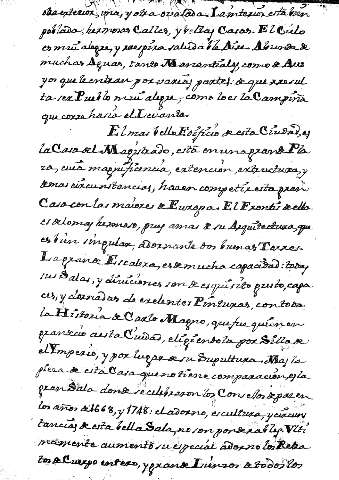 de exterior, una, y otra ovalada. La interior está bien
poblada, hermosas Calles, y bellas Casas. El Cielo
es muy alegre, y se respira saludable Aire. Abunda de
muchas Aguas, tanto Manantiales, como de Arro
yos que le entran por varias partes: de que resul
ta ser Pueblo muy alegre, como lo es la Campiña
que corre hasia el Levante.
El mas bello Edificio de esta Ciudad, es
la Casa del Magistrado, está en una grande Pla
za, cuia magnificencia, extencion, extructura, y
demas circunstancias, hacen competir esta gran
Casa con las maiores de Europa. El Frontis de ella
es de lo mas hermoso, pues amas de su Arquitectura, que
es bien singular, adornanle dos buenas Torres.
La grande Escalera, es de mucha capacidad: todas
sus Salas, y diviciones son de esquisito gusto, capa
ces, y adornadas de exelentes Pinturas, con toda
la Historia de Carlo Magno, que fue quien en
grandeció a esta Ciudad, eligiendola por Silla de
el Ymperio, y por lugar de su Sepultura. Mas la
pieza de esta Casa que no tiene comparacion, es la
gran Sala donde se celebraron los Consejos de paz en
los años de 1668, y 1748. el adorno, escultura, y circuns
tancias de esta bella Sala, no son ponderables. Ulti
mamente aumenta su especial adorno los Retra
tos de Cuerpo entero, y grandes Lienzos de todos los